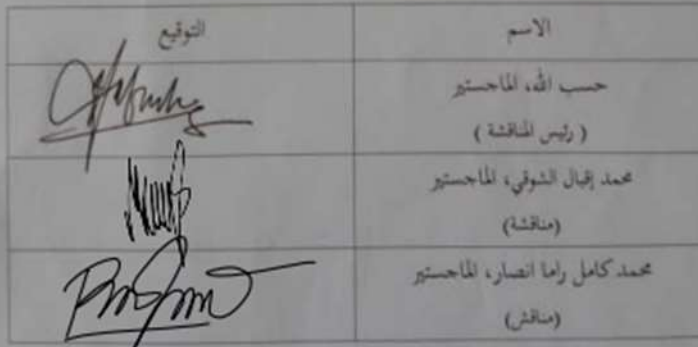 الاسم التوقيع
حسب الله، الماجستير
( رئيس المناقشة )
محمد إقبال الشوقي، الماجستير
(مناقشة)
محمد كامل راما انصار، الماجستير
(مناقش)